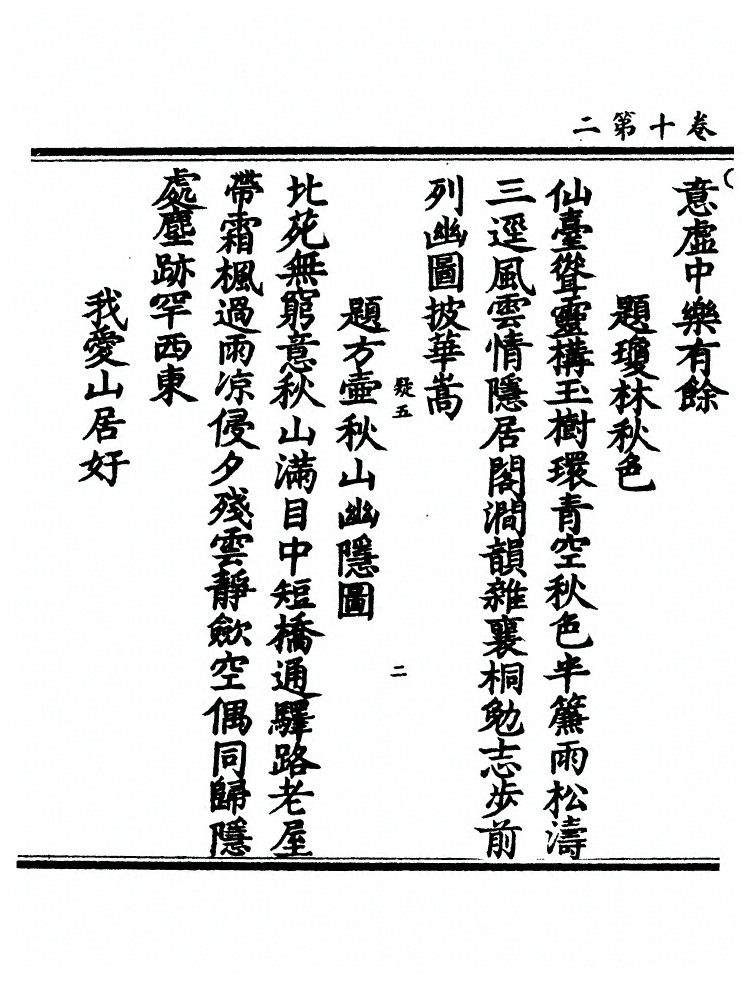 卷十第二
意虛中樂有餘
題瓊林秋色
仙臺聳靈構玉樹環青空秋色半簾雨松濤
三逕風雲情隱居閣澗韻雜襄桐勉志步前
列幽圖披華嵩
題方壺秋山幽隱圖
比苑無窮意秋山滿目中短橋通驛路老屋
帶霜楓過雨凉侵夕殘雲靜歛空偶同歸隱
處塵跡罕西東
我愛山居好
五
二